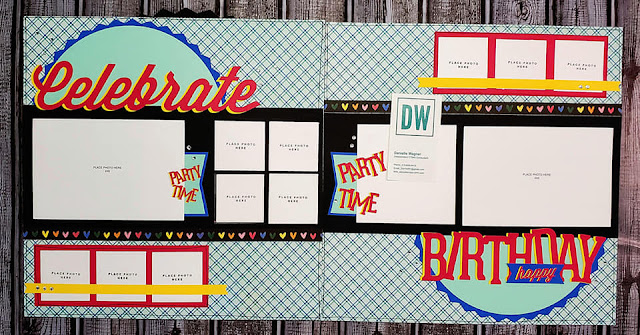 Celebrate
PLACE PHOTO HERE
PARTY
TIME
PLACE PHOTO
HERE
PLACE PHOTO
HERE
PLACE PHOTO
HERE
PLACE PHOTO
HERE
PLACE PHOTO
HERE
PLACE PHOTO
HERE
PLACE PHOTO
HERE
PLACE PHOTO
HERE
PLACE PHOTO
HERE
PLACE PHOTO
HERE
DW
Danielle Wagner
PARTY
TIME
PLACE PHOTO HERE
BIRTHDAY
happy